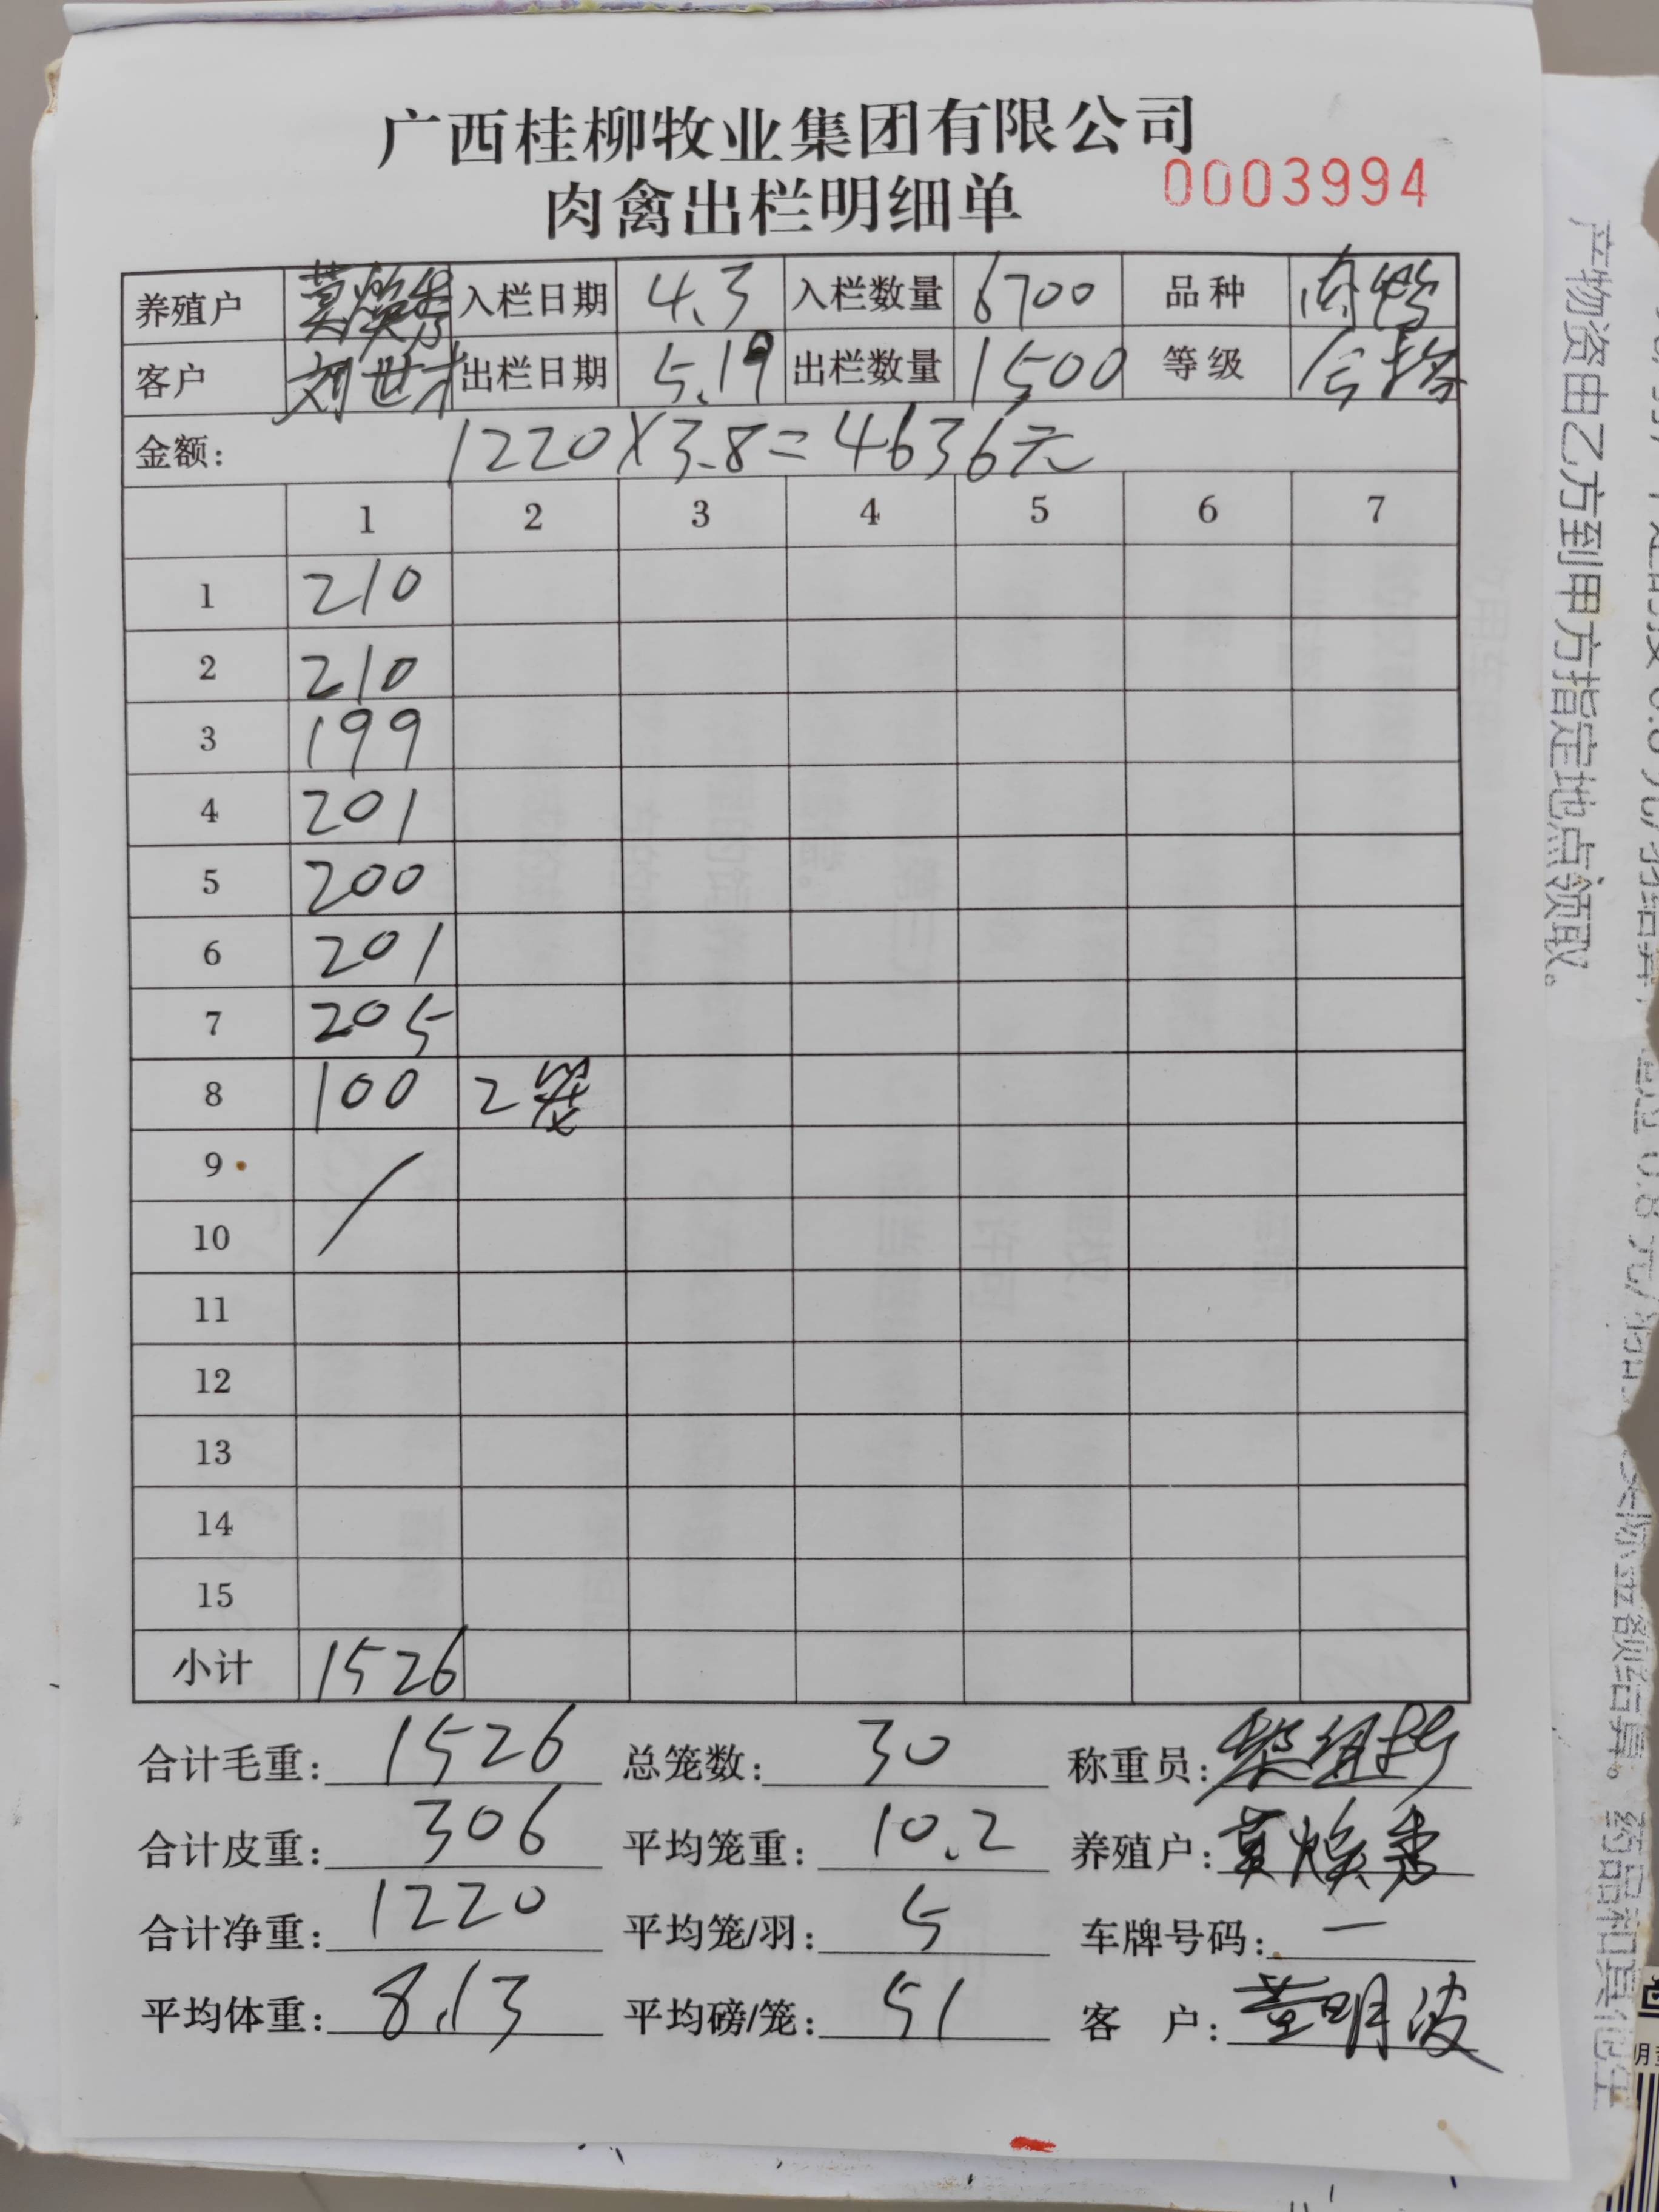 广西桂柳牧业集团有限公司
肉禽出栏明细单 0003994
养殖户 莫焕秀 入栏日期 4.3 入栏数量 6700 品种 肉鸭
客户 刘世才 出栏日期 5.19 出栏数量 1500 等级 合格
金额: 1220×3.8=4636元
1 2 3 4 5 6 7
1 210
2 210
3 199
4 201
5 200
6 201
7 205
8 100 2笼
9
10
11
12
13
14
15
小计 1526
合计毛重: 1526 总笼数: 30 称重员:
合计皮重: 306 平均笼重: 10.2 养殖户: 莫焕秀
合计净重: 1220 平均笼/羽: 5 车牌号码: 一
平均体重: 8.13 平均磅/笼: 51 客 户: 董明波
产物资由乙方到甲方指定地点领取。